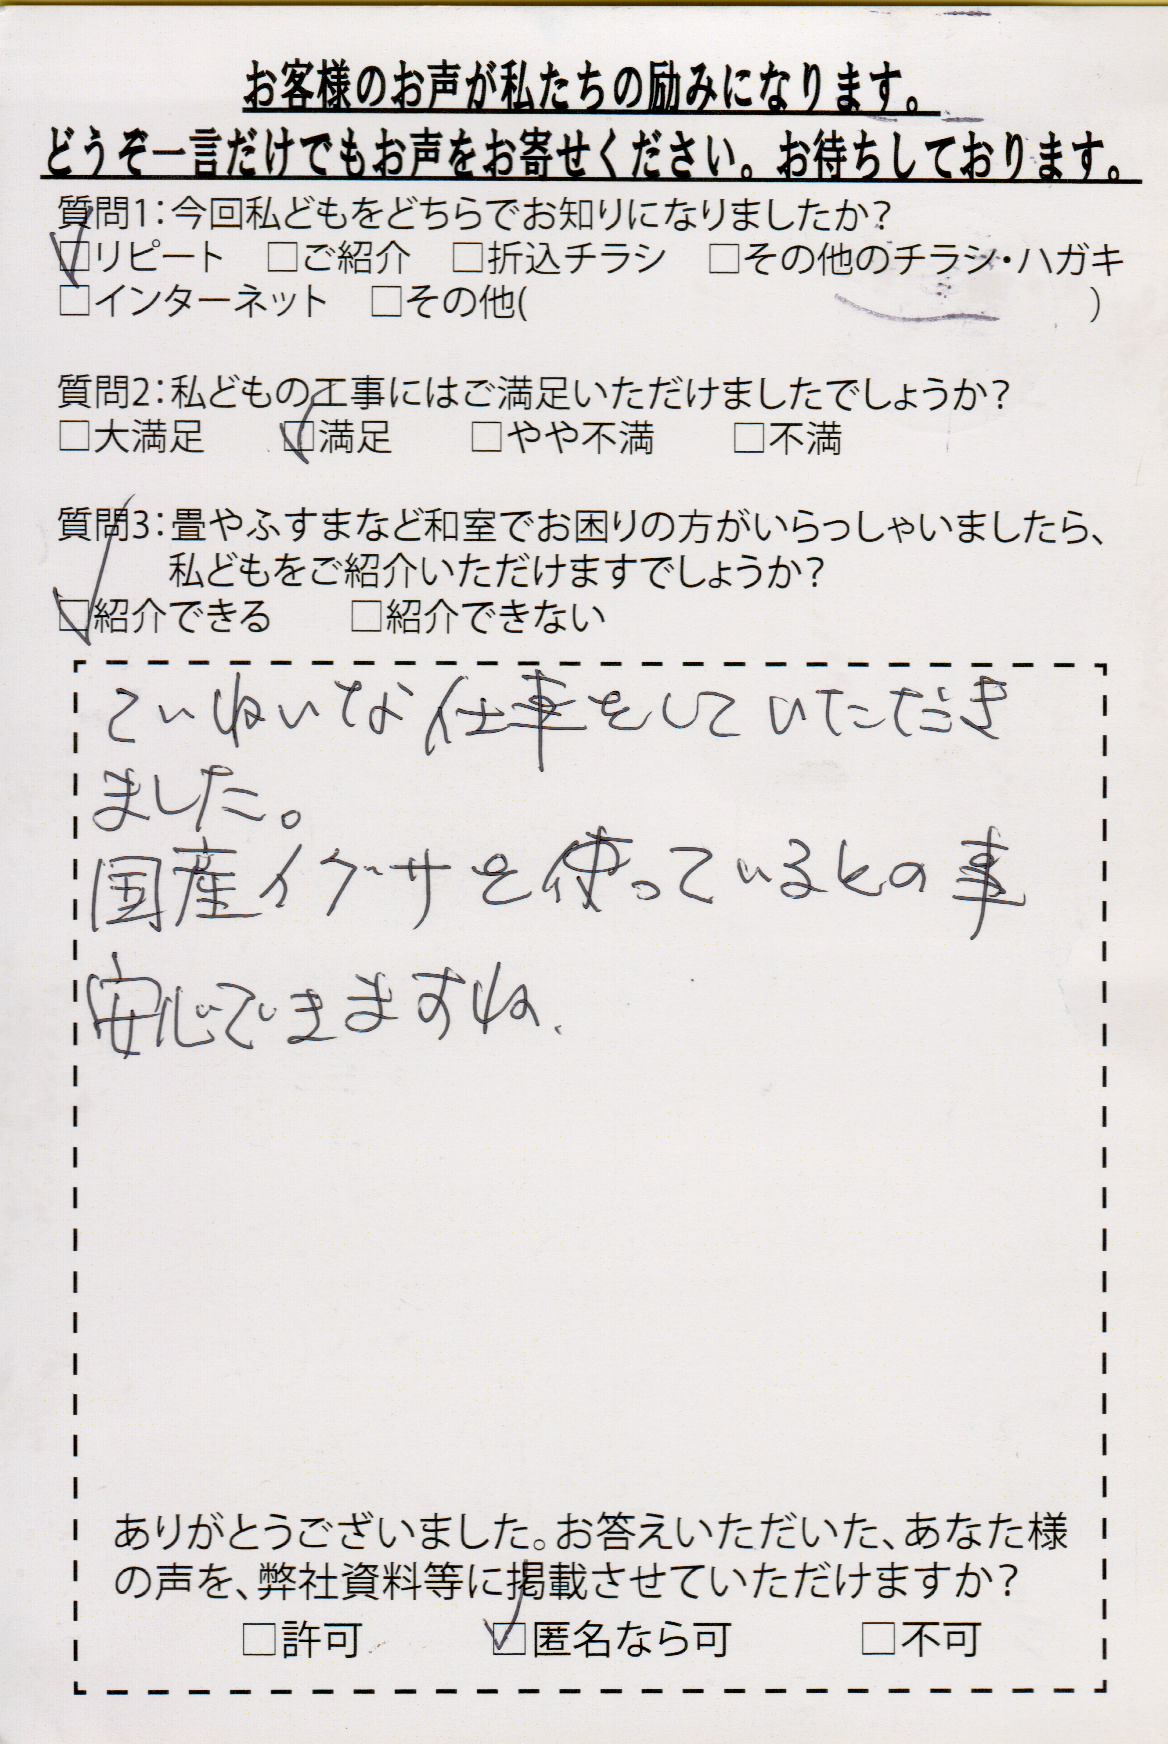 お客様のお声が私たちの励みになります。
どうぞ一言だけでもお声をお寄せください。お待ちしております。
質問1：今回私どもをどちらでお知りになりましたか？
☑リピート　□ご紹介　□折込チラシ　□その他のチラシ・ハガキ
□インターネット　□その他(　　　　　　　　　　　　　　　)
質問2：私どもの工事にはご満足いただけましたでしょうか？
□大満足　☑満足　□やや不満　□不満
質問3：畳やふすまなど和室でお困りの方がいらっしゃいましたら、
私どもをご紹介いただけますでしょうか？
☑紹介できる　□紹介できない
ていねいな仕事をしていただき
ました。
国産イグサを使っているとの事
安心できますね.
ありがとうございました。お答えいただいた、あなた様
の声を、弊社資料等に掲載させていただけますか？
□許可　☑匿名なら可　□不可